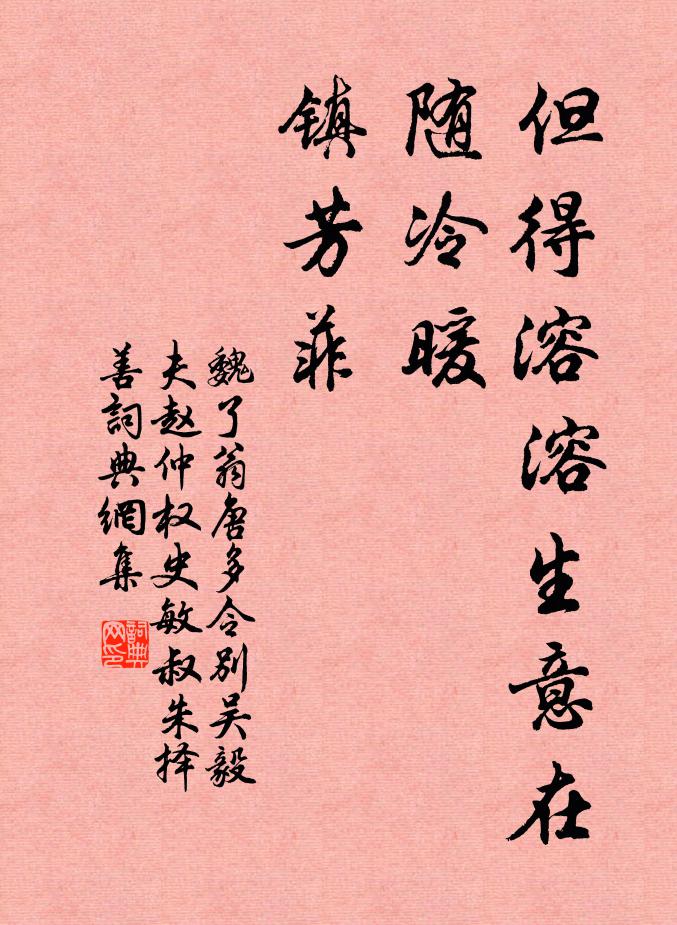 但得溶溶生意在
随冷暖
镇芳菲
魏了翁唐多令别吴毅
夫赵仲权史敏叔朱择
善詞典網集
詞典
网印